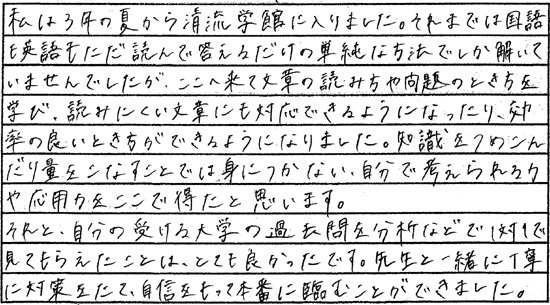 私は3年の夏から清流学館に入りました。それまでは国語
も英語もただ読んで答えるだけの単純な方法でしか解いて
いませんでしたが、ここへ来て文章の読み方や問題のとき方を
学び、読みにくい文章にも対応できるようになったり、効
率の良いとき方ができるようになりました。知識をつめこん
だり量をこなすことでは身につかない、自分で考えられる力
や応用力をここで得たと思います。
それと、自分の受ける大学の過去問を分析などで1対1で
見てもらえたことは、とても良かったです。先生と一緒に丁寧
に対策をたて、自信をもって本番に臨むことができました。